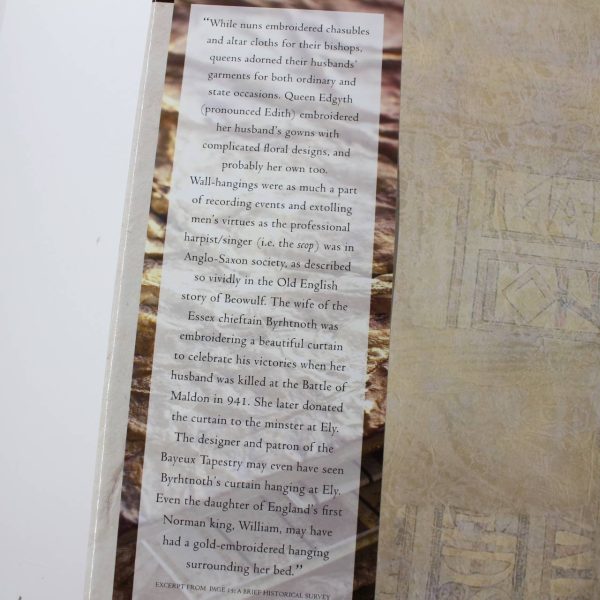 “While nuns embroidered chasubles
and altar cloths for their bishops,
queens adorned their husbands’
garments for both ordinary and
state occasions. Queen Edgyth
(pronounced Edith) embroidered
her husband’s gowns with
complicated floral designs, and
probably her own too.
Wall-hangings were as much a part
of recording events and extolling
men’s virtues as the professional
harpist/singer (i.e. the scop) was in
Anglo-Saxon society, as described
so vividly in the Old English
story of Beowulf. The wife of the
Essex chieftain Byrhtnoth was
embroidering a beautiful curtain
to celebrate his victories when her
husband was killed at the Battle of
Maldon in 941. She later donated
the curtain to the minster at Ely.
The designer and patron of the
Bayeux Tapestry may even have seen
Byrhtnoth’s curtain hanging at Ely.
Even the daughter of England’s first
Norman king, William, may have
had a gold-embroidered hanging
surrounding her bed.”
EXCERPT FROM PAGE 15: A BRIEF HISTORICAL SURVEY